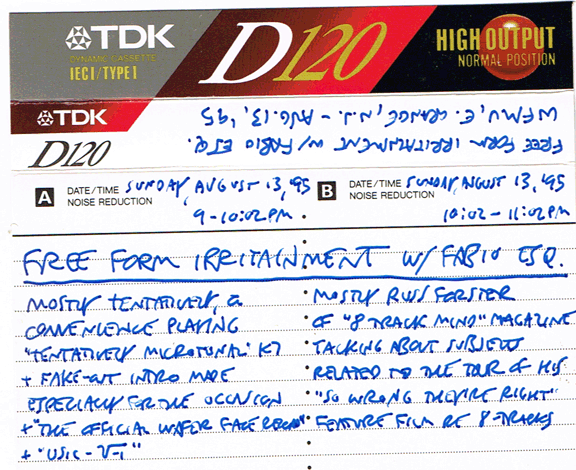 TDK D120 HIGH OUTPUT
DYNAMIC CASSETTE NORMAL POSITION
IECI/TYPE I
TDK
D120
FREE FORM IRRITAINMENT W/ FABIO ESQ.
WFMU, E. ORANGE, N.J. - AUG. 13, '95
A DATE/TIME SUNDAY, AUGUST 13, '95
NOISE REDUCTION
9-10:02 PM
B DATE/TIME SUNDAY, AUGUST 13, '95
NOISE REDUCTION
10:02-11:02 PM
FREE FORM IRRITAINMENT W/ FABIO ESQ.
MOSTLY TENTATIVELY, a
CONVENIENCE PLAYING
"TENTATIVELY MICROTONAL" K7
+ FAKE-OUT INTRO MADE
ESPECIALLY FOR THE OCCASION
+ "THE OFFICIAL WAFER FACE RECORD"
+ "USIC - √-1"
MOSTLY RUSS FORSTER
OF "8-TRACK MIND" MAGAZINE
TALKING ABOUT SUBJECTS
RELATED TO THE TOUR OF HIS
"SO WRONG THEY'RE RIGHT"
FEATURE FILM RE 8-TRACKS